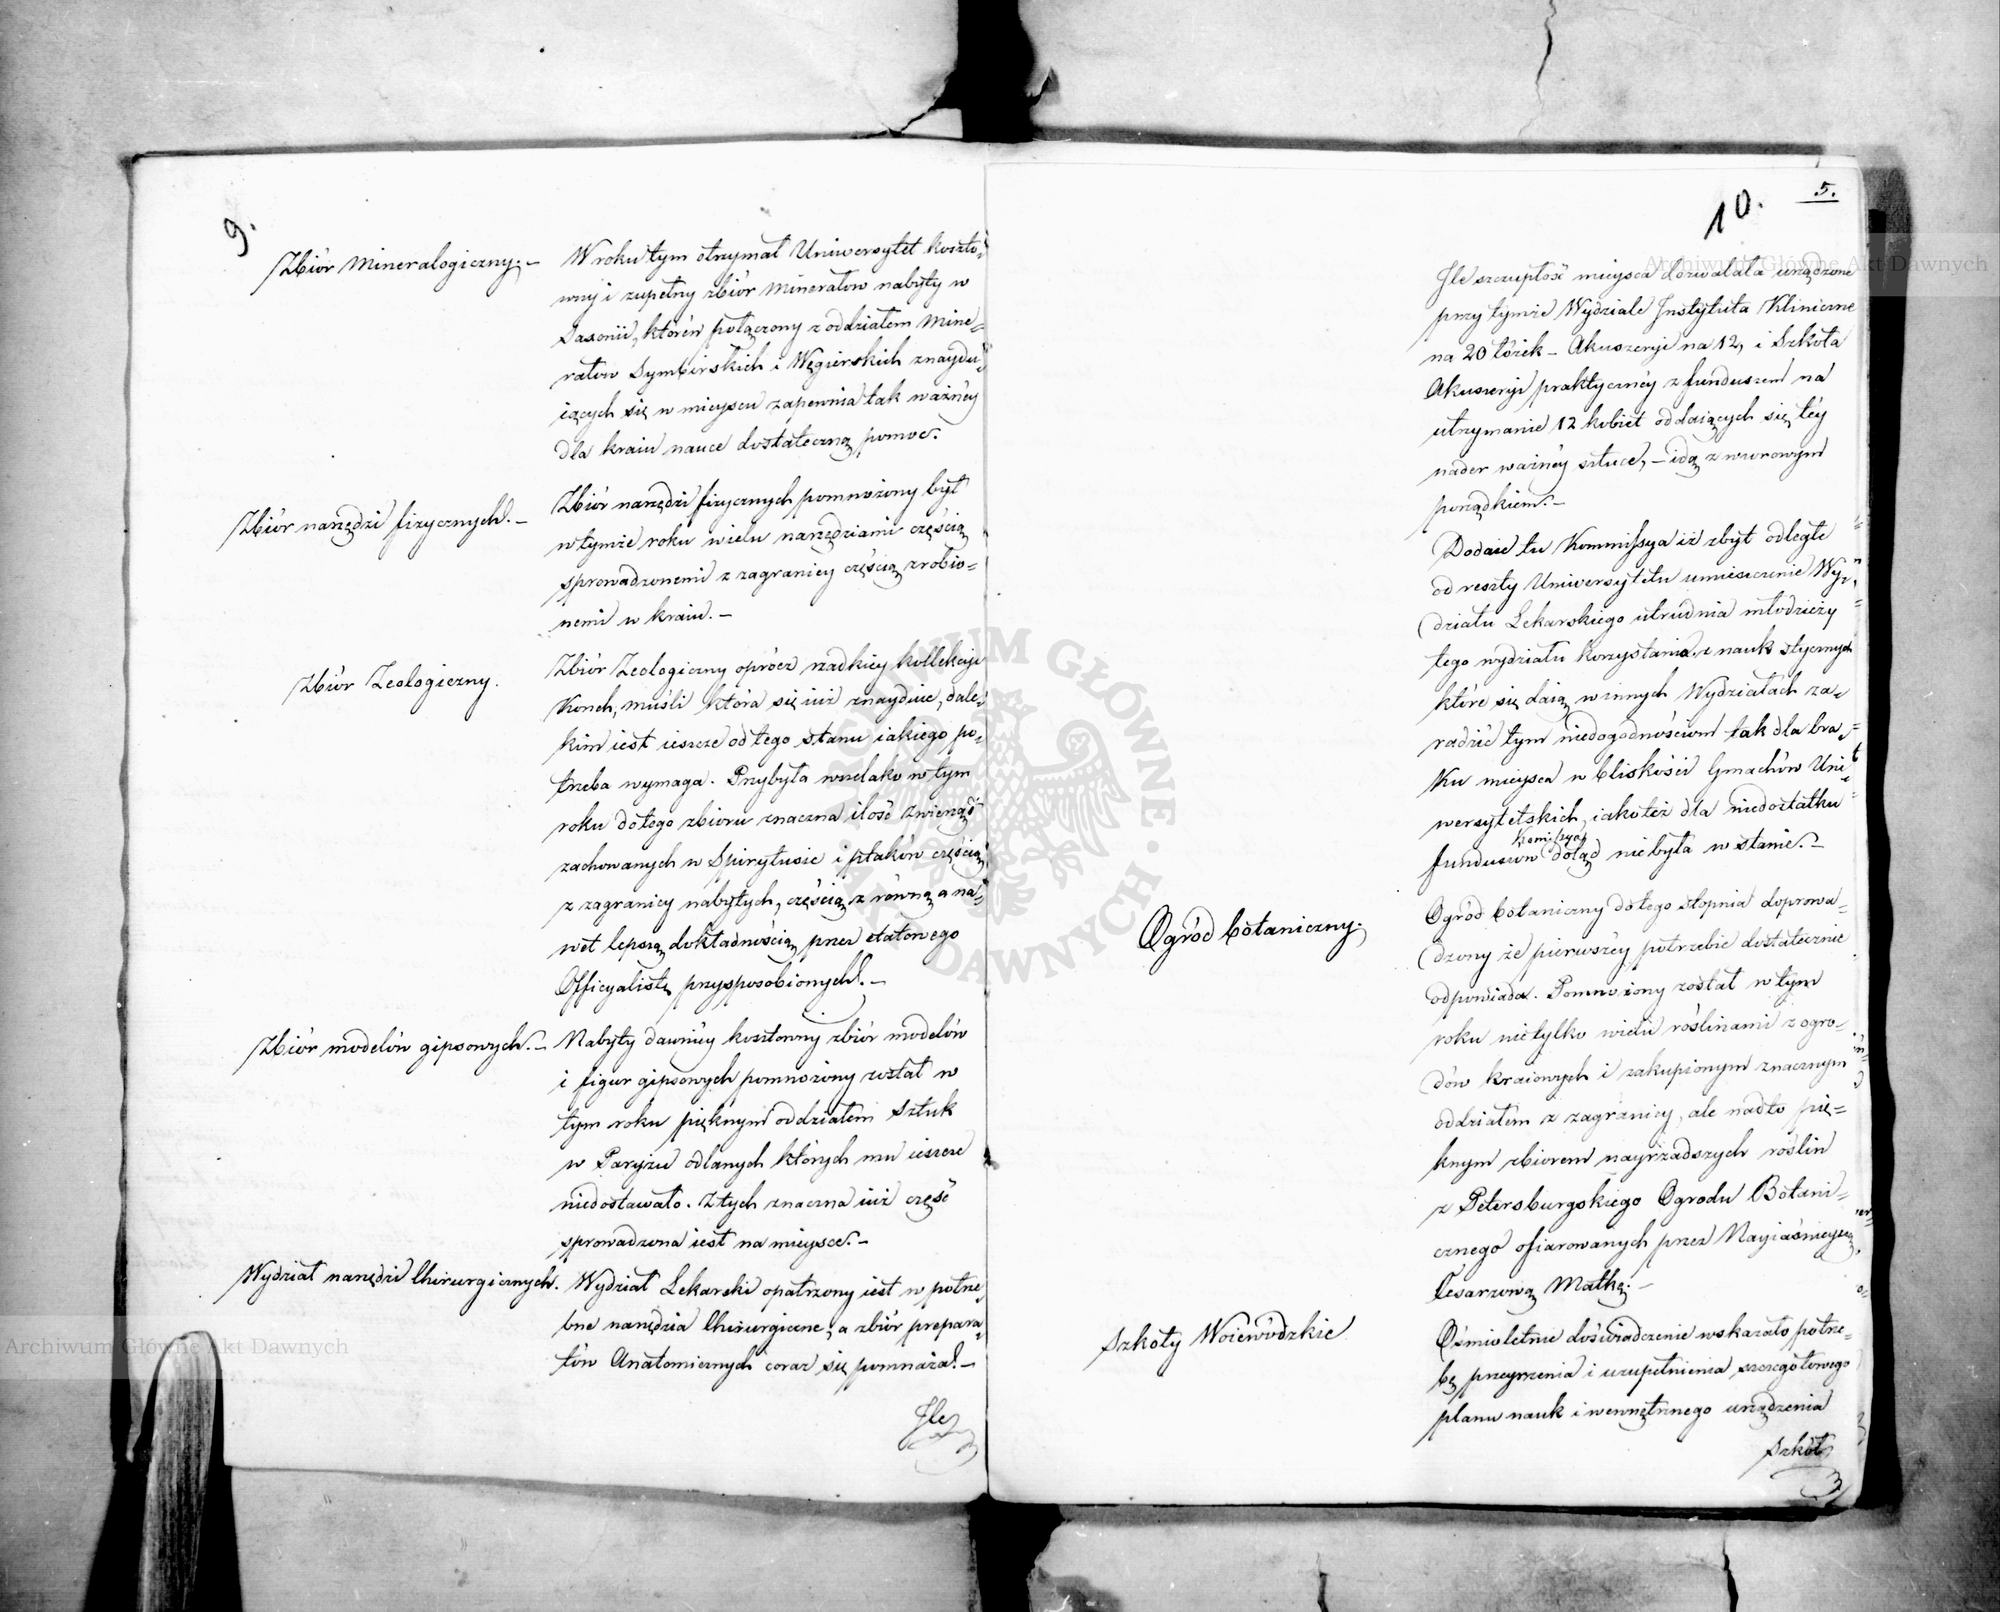 9.
Zbiór Mineralogiczny. –
W roku tym otrzymał Uniwersytet koszto=
wny i zupełny zbiór Minerałów nabyty w
Saxonii, któren połączony z oddziałem Mine=
rałów Symbirskich i Węgierskich znaydu=
iących się w mieyscu zapewnia tak ważney
dla kraiu nauce dostateczną pomoc.
Zbiór narzędzi fizycznych. –
Zbiór narzędzi fizycznych pomnożony był
w tymże roku wielu narzędziami częścią
sprowadzonemi z zagranicy częścią zrobio=
nemi w kraiu. –
Zbiór Zoologiczny.
Zbiór Zoologiczny oprócz rzadkiey kollekcyi
Konch, muśli która się iuż znayduie, dale=
kim iest ieszcze od tego stanu iakiego po=
trzeba wymaga. Przybyła wszelako w tym
roku do tego zbioru znaczna ilość zwierząt
zachowanych w Spirytusie i ptaków częścią
z zagranicy nabytych, częścią z równą a na=
wet lepszą dokładnością przez etatowego
Officyalistę przysposobionych. –
Zbiór modelów gipsowych. –
Nabyty dawniey kosztowny zbiór modelów
i figur gipsowych pomnożony został w
tym roku pięknym oddziałem sztuk
w Paryżu odlanych których mu ieszcze
niedostawało. Z tych znaczna iuż część
sprowadzona iest na mieysce. –
Wydział narzędzi Chirurgicznych.
Wydział Lekarski opatrzony iest w potrze=
bne narzędzia Chirurgiczne, a zbiór prepara=
tów Anatomicznych coraz się pomnaża. –
Ile
10.
5.
Ile szczupłość mieysca dozwalała urządzone
przy tymże Wydziale Instytuta Kliniczne
na 20 łóżek – Akuszeryi na 12, i Szkoła
Akuszeryi praktyczney z funduszem na
utrzymanie 12 kobiet oddaiących się tey
nader ważney sztuce, – idą z wzorowym
porządkiem. –
Dodaie tu Kommissya iż zbyt odległe
od reszty Uniwersytetu umieszczenie Wy=
działu Lekarskiego utrudnia młodzieży
tego wydziału korzystanie z nauk stycznych
które się daią w innych Wydziałach za=
radzić tym niedogodnościom tak dla bra=
ku mieysca w bliskości Gmachów Uni=
wersytetskich, iako też dla niedostatku
Komissya
funduszów dotąd nie była w stanie. –
Ogród botaniczny.
Ogród botaniczny do tego stopnia doprowa=
dzony że pierwszey potrzebie dostatecznie
odpowiada. Pomnożony został w tym
roku nie tylko wielu roślinami z ogro=
dów kraiowych i zakupionym znacznym
oddziałem z zagranicy, ale nadto pię=
knym zbiorem nayrzadszych roślin
z Petersburgskiego Ogrodu Botani=
cznego ofiarowanych przez Nayiaśnieyszą
Cesarzową Matkę. –
Szkoły Woiewódzkie
Ośmioletnie doświadczenie wskazało potrze=
bę przeyrzenia i uzupełnienia szczegółowego
planu nauk i wewnętrznego urządzenia
szkół
Archiwum Główne Akt Dawnych
Archiwum Główne Akt Dawnych
ARCHIWUM GŁÓWNE AKT DAWNYCH